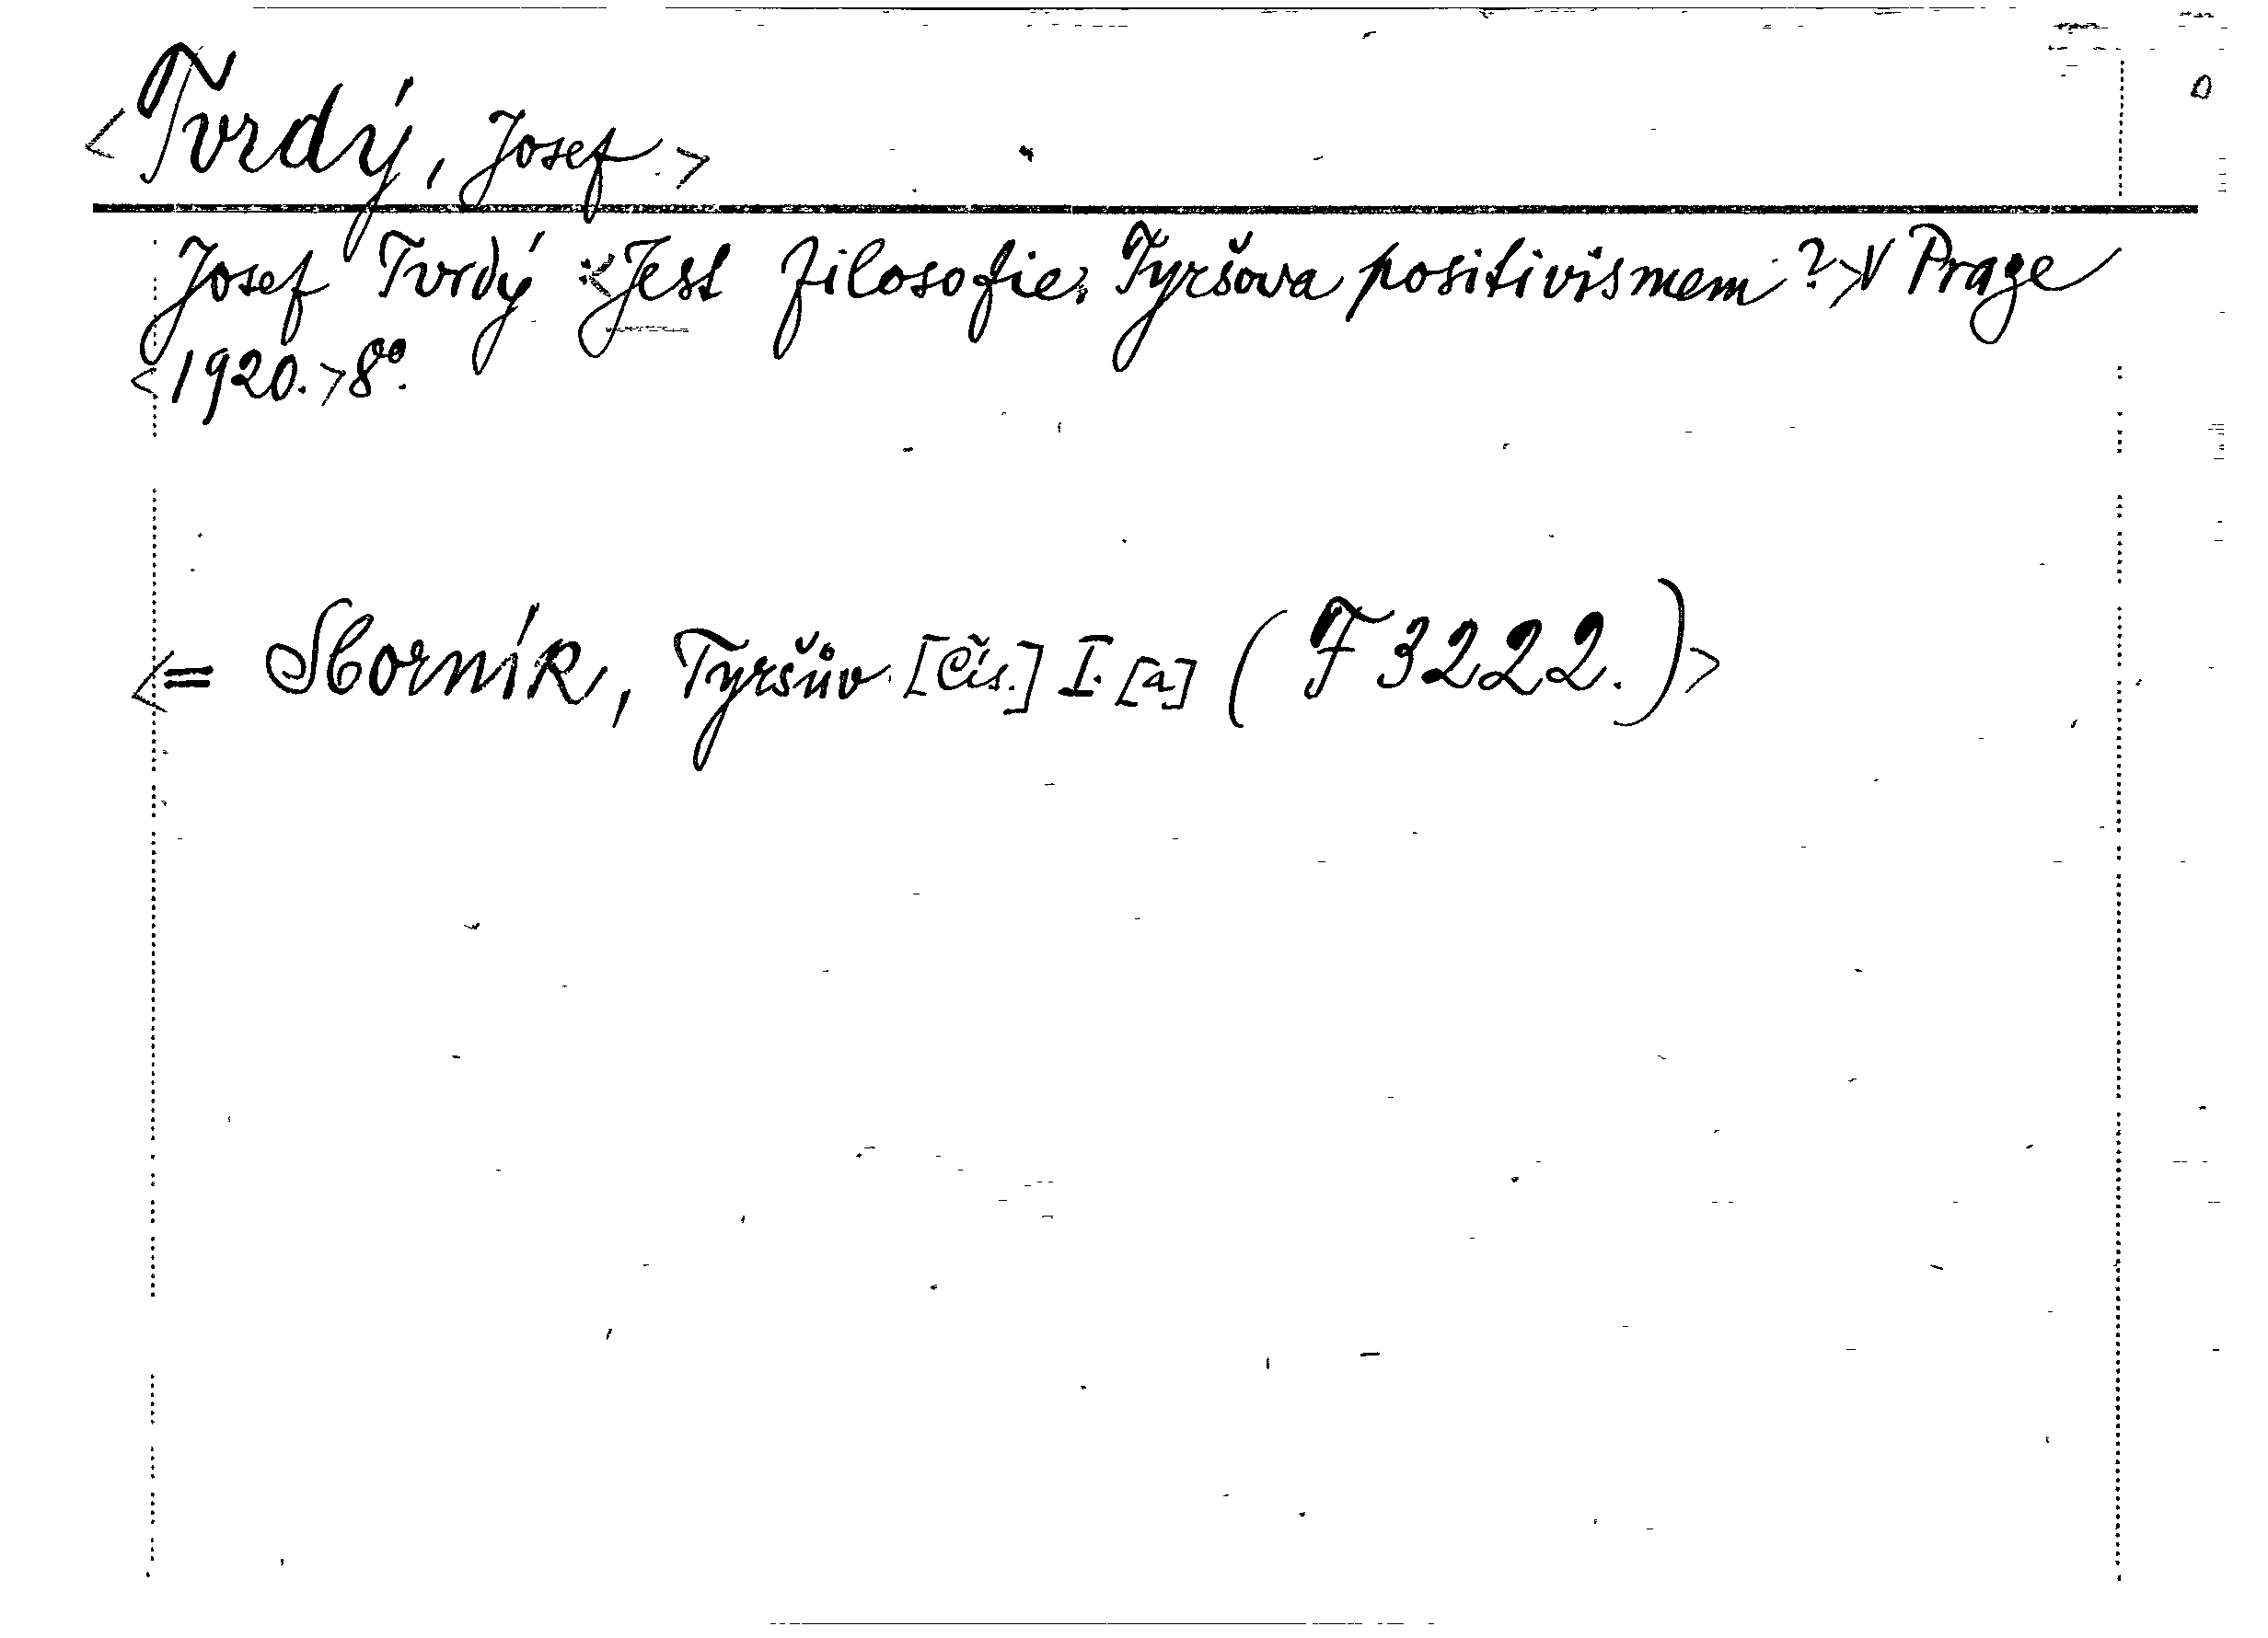 <Tvrdý, Josef.>
Josef Tvrdý: <Jest filosofie Tyršova positivismem?> V Praze
<1920.> 8°.
<= Sborník, Tyršův. [Čís.] I. [a] (F 3222.)>